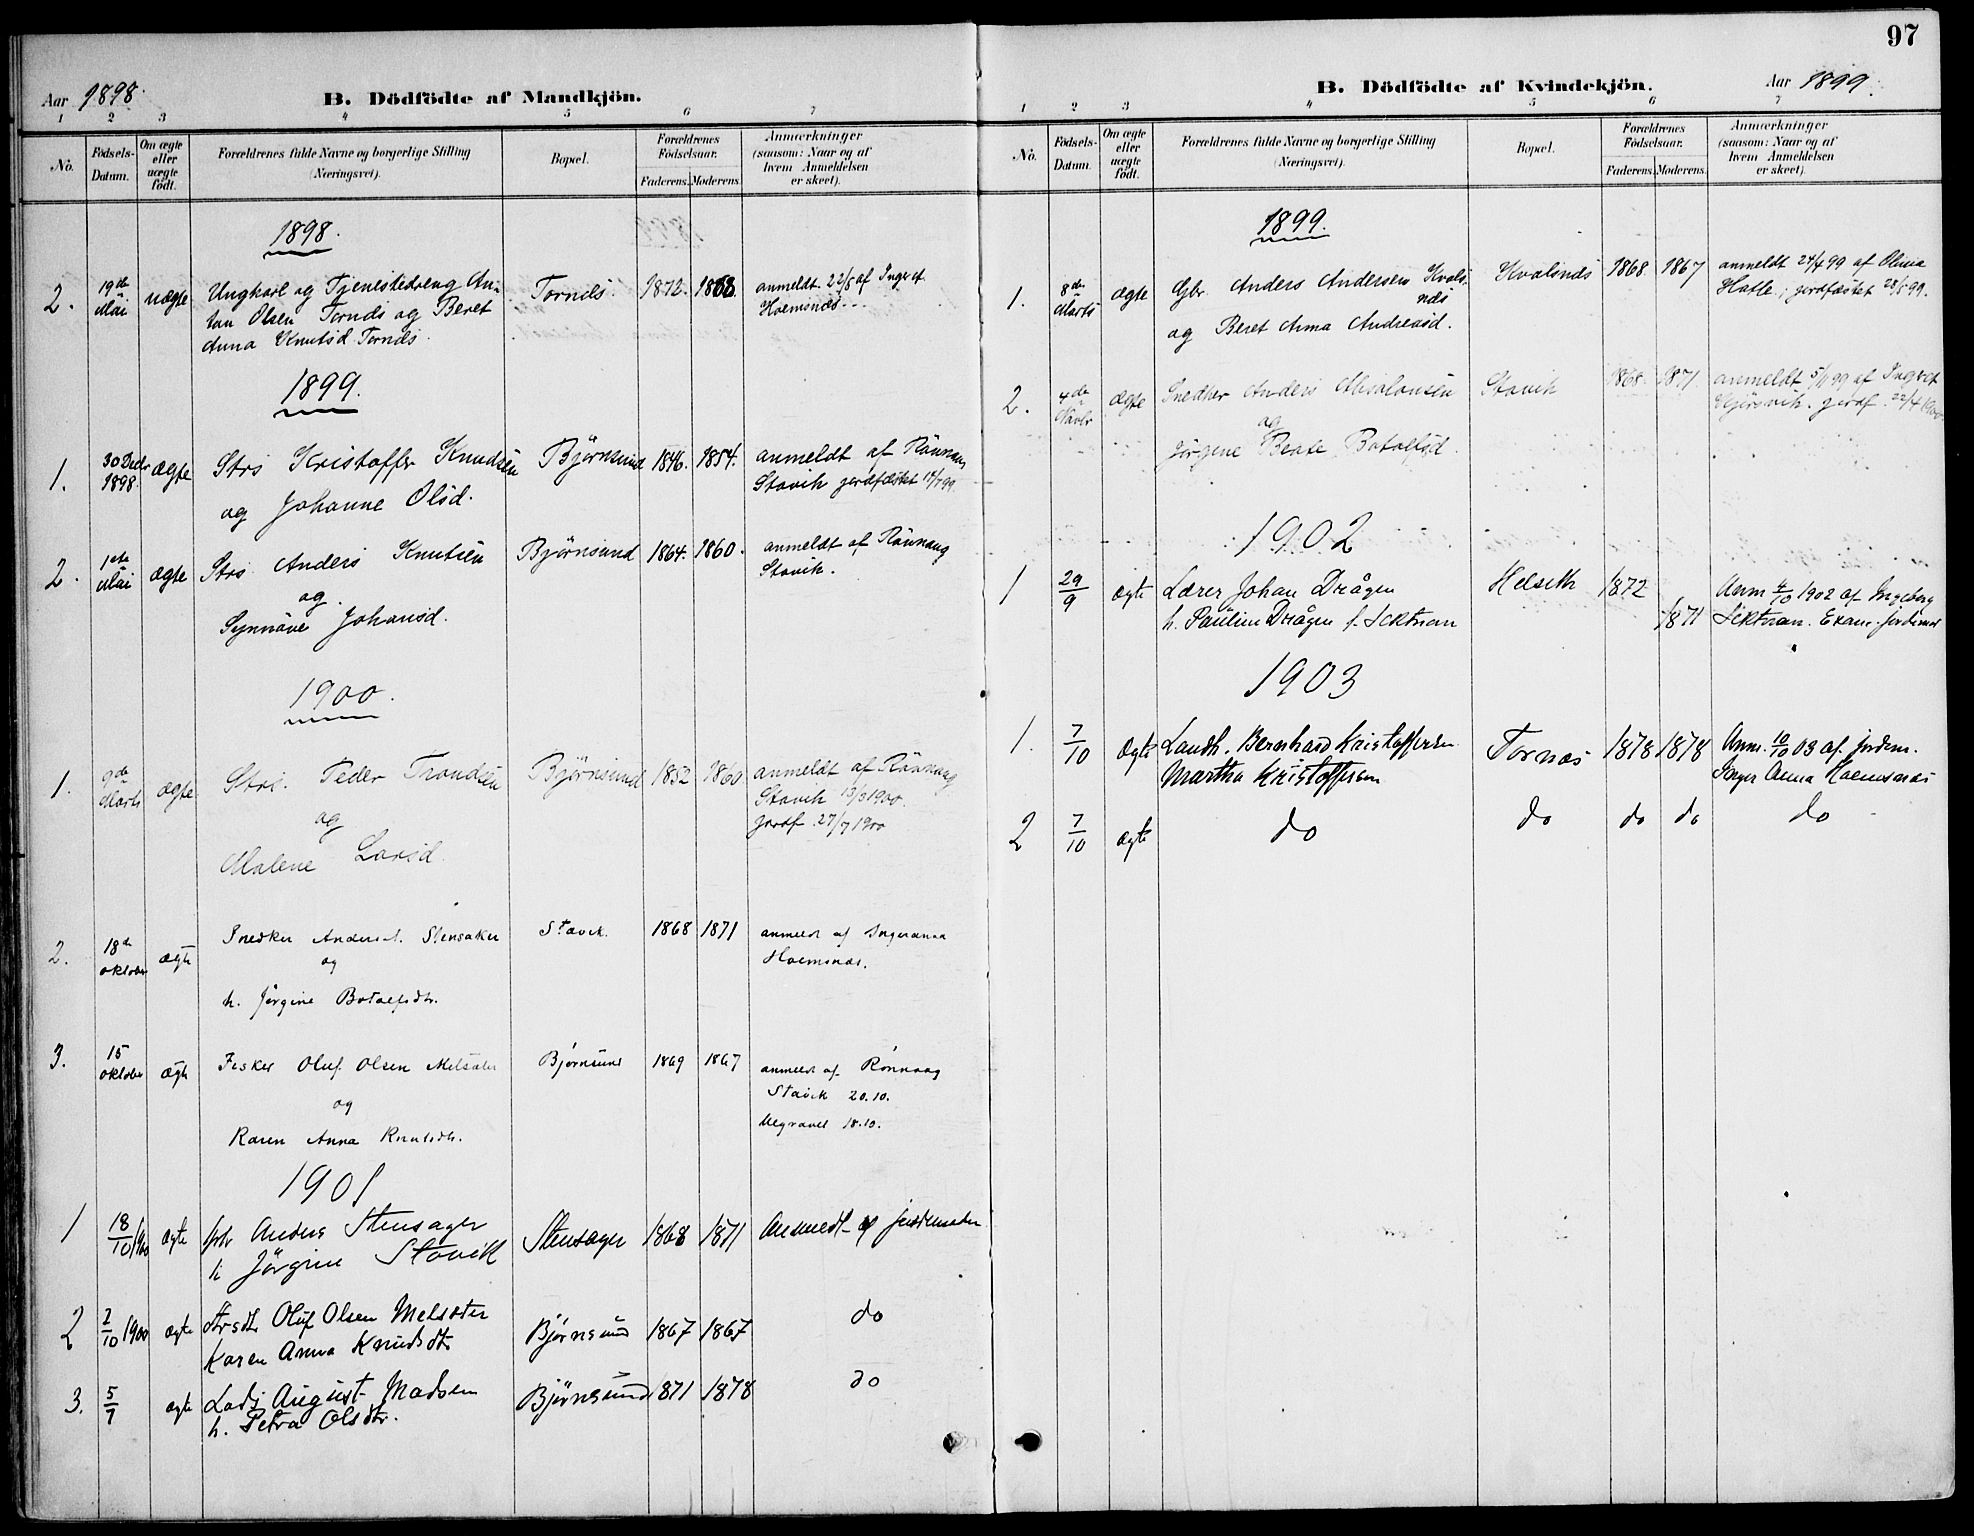 97
Aar 1898.
B. Dödfödte af Mandkjön.
1 2 3 4 5 6 7
No.
Födsels-Datum.
Om ægte eller uægte födt.
Forældrenes fulde Navne og borgerlige Stilling (Næringsvei).
Bopæl.
Forældrenes Födselsaar.
Faderens. Moderens.
Anmærkninger (saasom: Naar og af hvem Anmeldelsen er skeet).
1898.
2. 19de Mai uægte Ungkarl og Tjenestedreng An- Tornæs. 1872. 1868. anmeldt 22/5 af
ton Olsen Tornæs og Beret Holmsnæs
Anna Knutsd. Tornæs.
1899.
1. 30 Decbr 1898. ægte Strs Kristoffer Knudsen Björnsund 1846. 1854. anmeldt af Rönnaug
og Johanne Olsd. Stavik jordfæstet
2. 1ste Mai ægte Strs. Anders Knutsen Björnsund 1864. 1860. anmeldt af Rönnaug
og Stavik.
Synnöve Johansd.
1900.
1. 9de Marts ægte Strs. Peder Trondsen Björnsund 1852 1860 anmeldt af Rönnaug
og Stavik 13/3 1900.
Malene Larsd. jordf. 27/7 1900
2. 18de oktober ægte Snedker Anders A. Stensaker Stavik. 1868 1871 anmeldt af Ingeranna
og Holmsnæs.
h. Jörgine Botolfsdtr.
3. 15 oktober ægte Fisker Oluf Olsen Melsæter Björnsund 1869 1867 anmeldt af Rönnaug
og Stavik 20.10.
Karen Anna Knutsdtr. Begravet 18.10.
1901
1 18/10 1900 ægte Anders Stensager Stensager 1868 1871 Anmeldt af jordemoder
h Jörgine Stavik
2 2/10 1900 ægte Oluf Olsen Melsæter Björnsund 1867 1867 do
Karen Anna Knudsdtr
3. 5/7 ægte August Madsen Björnsund 1871 1878 do
h. Petra Olsdtr.
B. Dödfödte af Kvindekjön.
Aar 1899.
1 2 3 4 5 6 7
No.
Födsels-Datum.
Om ægte eller uægte födt.
Forældrenes fulde Navne og borgerlige Stilling (Næringsvei).
Bopæl.
Forældrenes Födselsaar.
Faderens. Moderens.
Anmærkninger (saasom: Naar og af hvem Anmeldelsen er skeet).
1899.
1. 8de Marts ægte Gbr. Anders Andersen Kvals- Kvalsnæs 1868. 1867 anmeldt 24/4 99 af Olina
næs Hatle; jordfæstet 28/5 99.
og Beret Anna Andreasd.
2. 4de Novbr ægte Snedker Anders Absalonsen Stavik 1868. 1871. anmeldt 5/11 99 af
og jordf. 22/4 1900
Jörgine Beate Botolfsd.
1902
1 29/9 ægte Lærer Johan Drågen Helseth 1872 Anm 4/10 1902 af Ingeborg
h. Pauline Drågen f. 1871 Exam. jordmor
1903
1. 7/10 ægte Landh. Bernhard Kristoffersen Tornæs 1878 1878 Anm. 10/10 03 af jordm.
Martha Kristoffersen Inger Anna Holmsnæs
2 7/10 ægte do do do do do